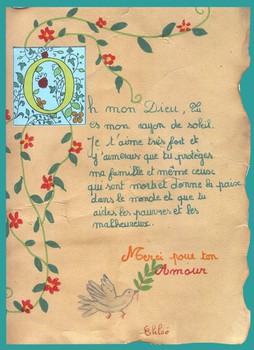 Oh mon Dieu, tu
es mon rayon de soleil.
Je t'aime très fort et
j'aimerais que tu protèges
ma famille et même ceux
qui sont morts et donne la paix
dans le monde et que tu
aides les pauvres et les
malheureux.
Merci pour ton
Amour
Chloé